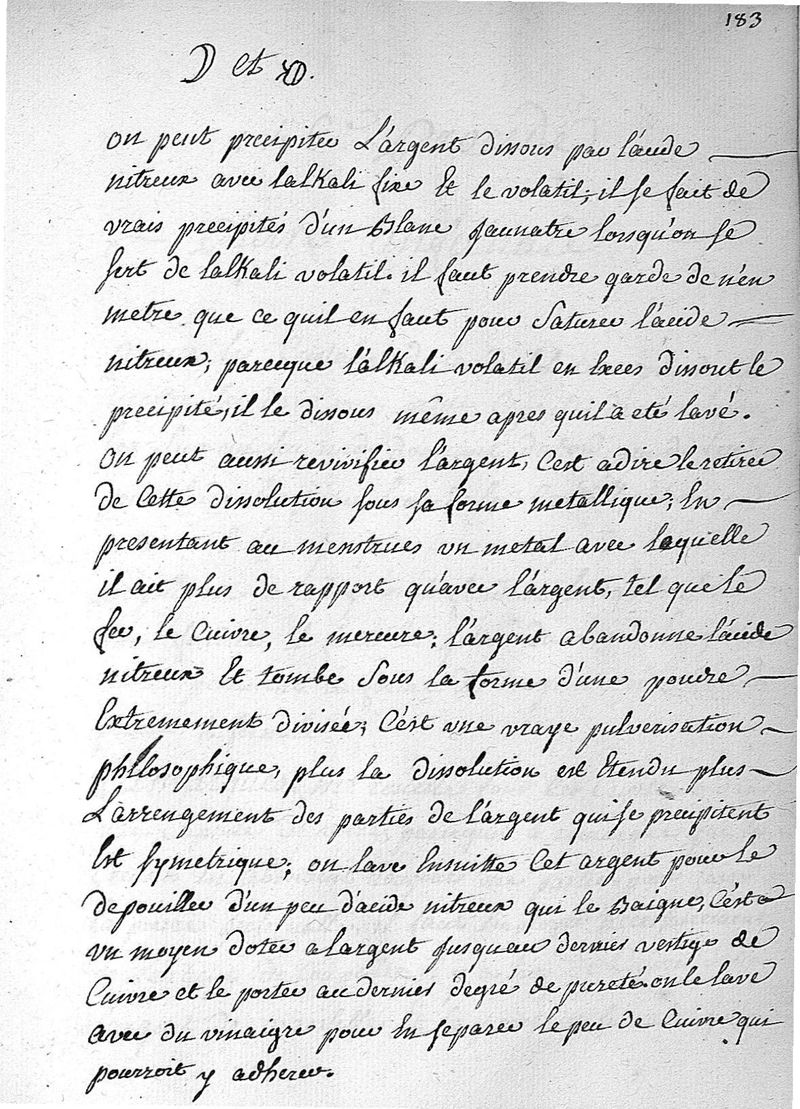 183
D et
on peut precipiter L'argent dissous par l'acide
nitreux avec lalkali fixe Et le volatil; il se fait de
vrais precipités d'un Blanc Jaunatre lorsqu'on se
sert de lalkali volatil. il faut prendre garde de n'en
metre que ce quil en faut pour Saturer l'acide
nitreux; parceque l'alkali volatil en Exces dissout le
precipité, il le dissous même apres quil a eté lavé.
On peut aussi revivifier l'argent, C'est a dire le retirer
de Cette dissolution sous sa forme metallique; En
presentant au menstrues un metal avec laquelle
il ait plus de rapport qu'avec l'argent, tel que le
fer, le Cuivre, le mercure; l'argent abandonne l'acide
nitreux Et tombe Sous la forme d'une poudre
Extremement divisée; C'est une vraye pulverisation
philosophique, plus la dissolution est Etendu plus
L'arrengement des parties de l'argent qui se precipitent
Est symetrique; on lave Ensuitte Cet argent pour le
depouiller d'un peu d'acide nitreux qui le Baigne, C'est
un moyen doter a largent Jusqu'au dernier vestige de
Cuivre et le porter au dernier degré de pureté. on le lave
avec du vinaigre pour En separer le peu de Cuivre qui
pourroit y adherer.